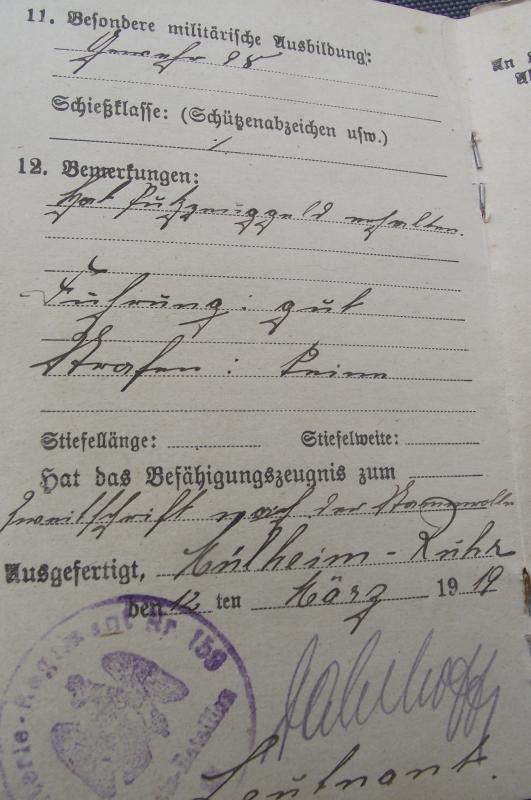 11. Besondere militärische Ausbildung:
Gewehr 98
Schießklasse: (Schützenabzeichen usw.)
/
12. Bemerkungen:
Hat Putzzeuggeld erhalten.
Führung: gut
Strafen: keine
Stiefellänge: Stiefelweite:
Hat das Befähigungszeugnis zum
Zweitschrift nach der Stammrolle
Ausgefertigt, Mülheim-Ruhr
den 12 ten März 1919
Leutnant.
terie-Regiment Nr 159
Bataillon
An